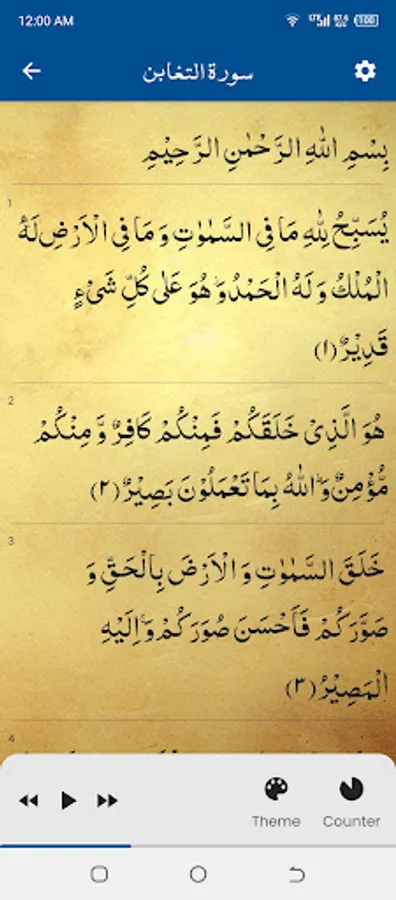 12:00 AM
LTE
100
سورة التغابن
بِسْمِ اللهِ الرَّحْمٰنِ الرَّحِيْمِ
1
يُسَبِّحُ لِلّٰهِ مَا فِى السَّمٰوٰتِ وَ مَا فِى الْاَرْضِ لَهُ
الْمُلْكُ وَ لَهُ الْحَمْدُ وَ هُوَ عَلٰى كُلِّ شَىْءٍ
قَدِيْرٌ (۱)
2
هُوَ الَّذِىْ خَلَقَكُمْ فَمِنْكُمْ كَافِرٌ وَّ مِنْكُمْ
مُّؤْمِنٌ وَ اللهُ بِمَا تَعْمَلُوْنَ بَصِيْرٌ (۲)
3
خَلَقَ السَّمٰوٰتِ وَ الْاَرْضَ بِالْحَقِّ وَ
صَوَّرَكُمْ فَاَحْسَنَ صُوَرَكُمْ وَ اِلَيْهِ
الْمَصِيْرُ (۳)
4
Theme Counter